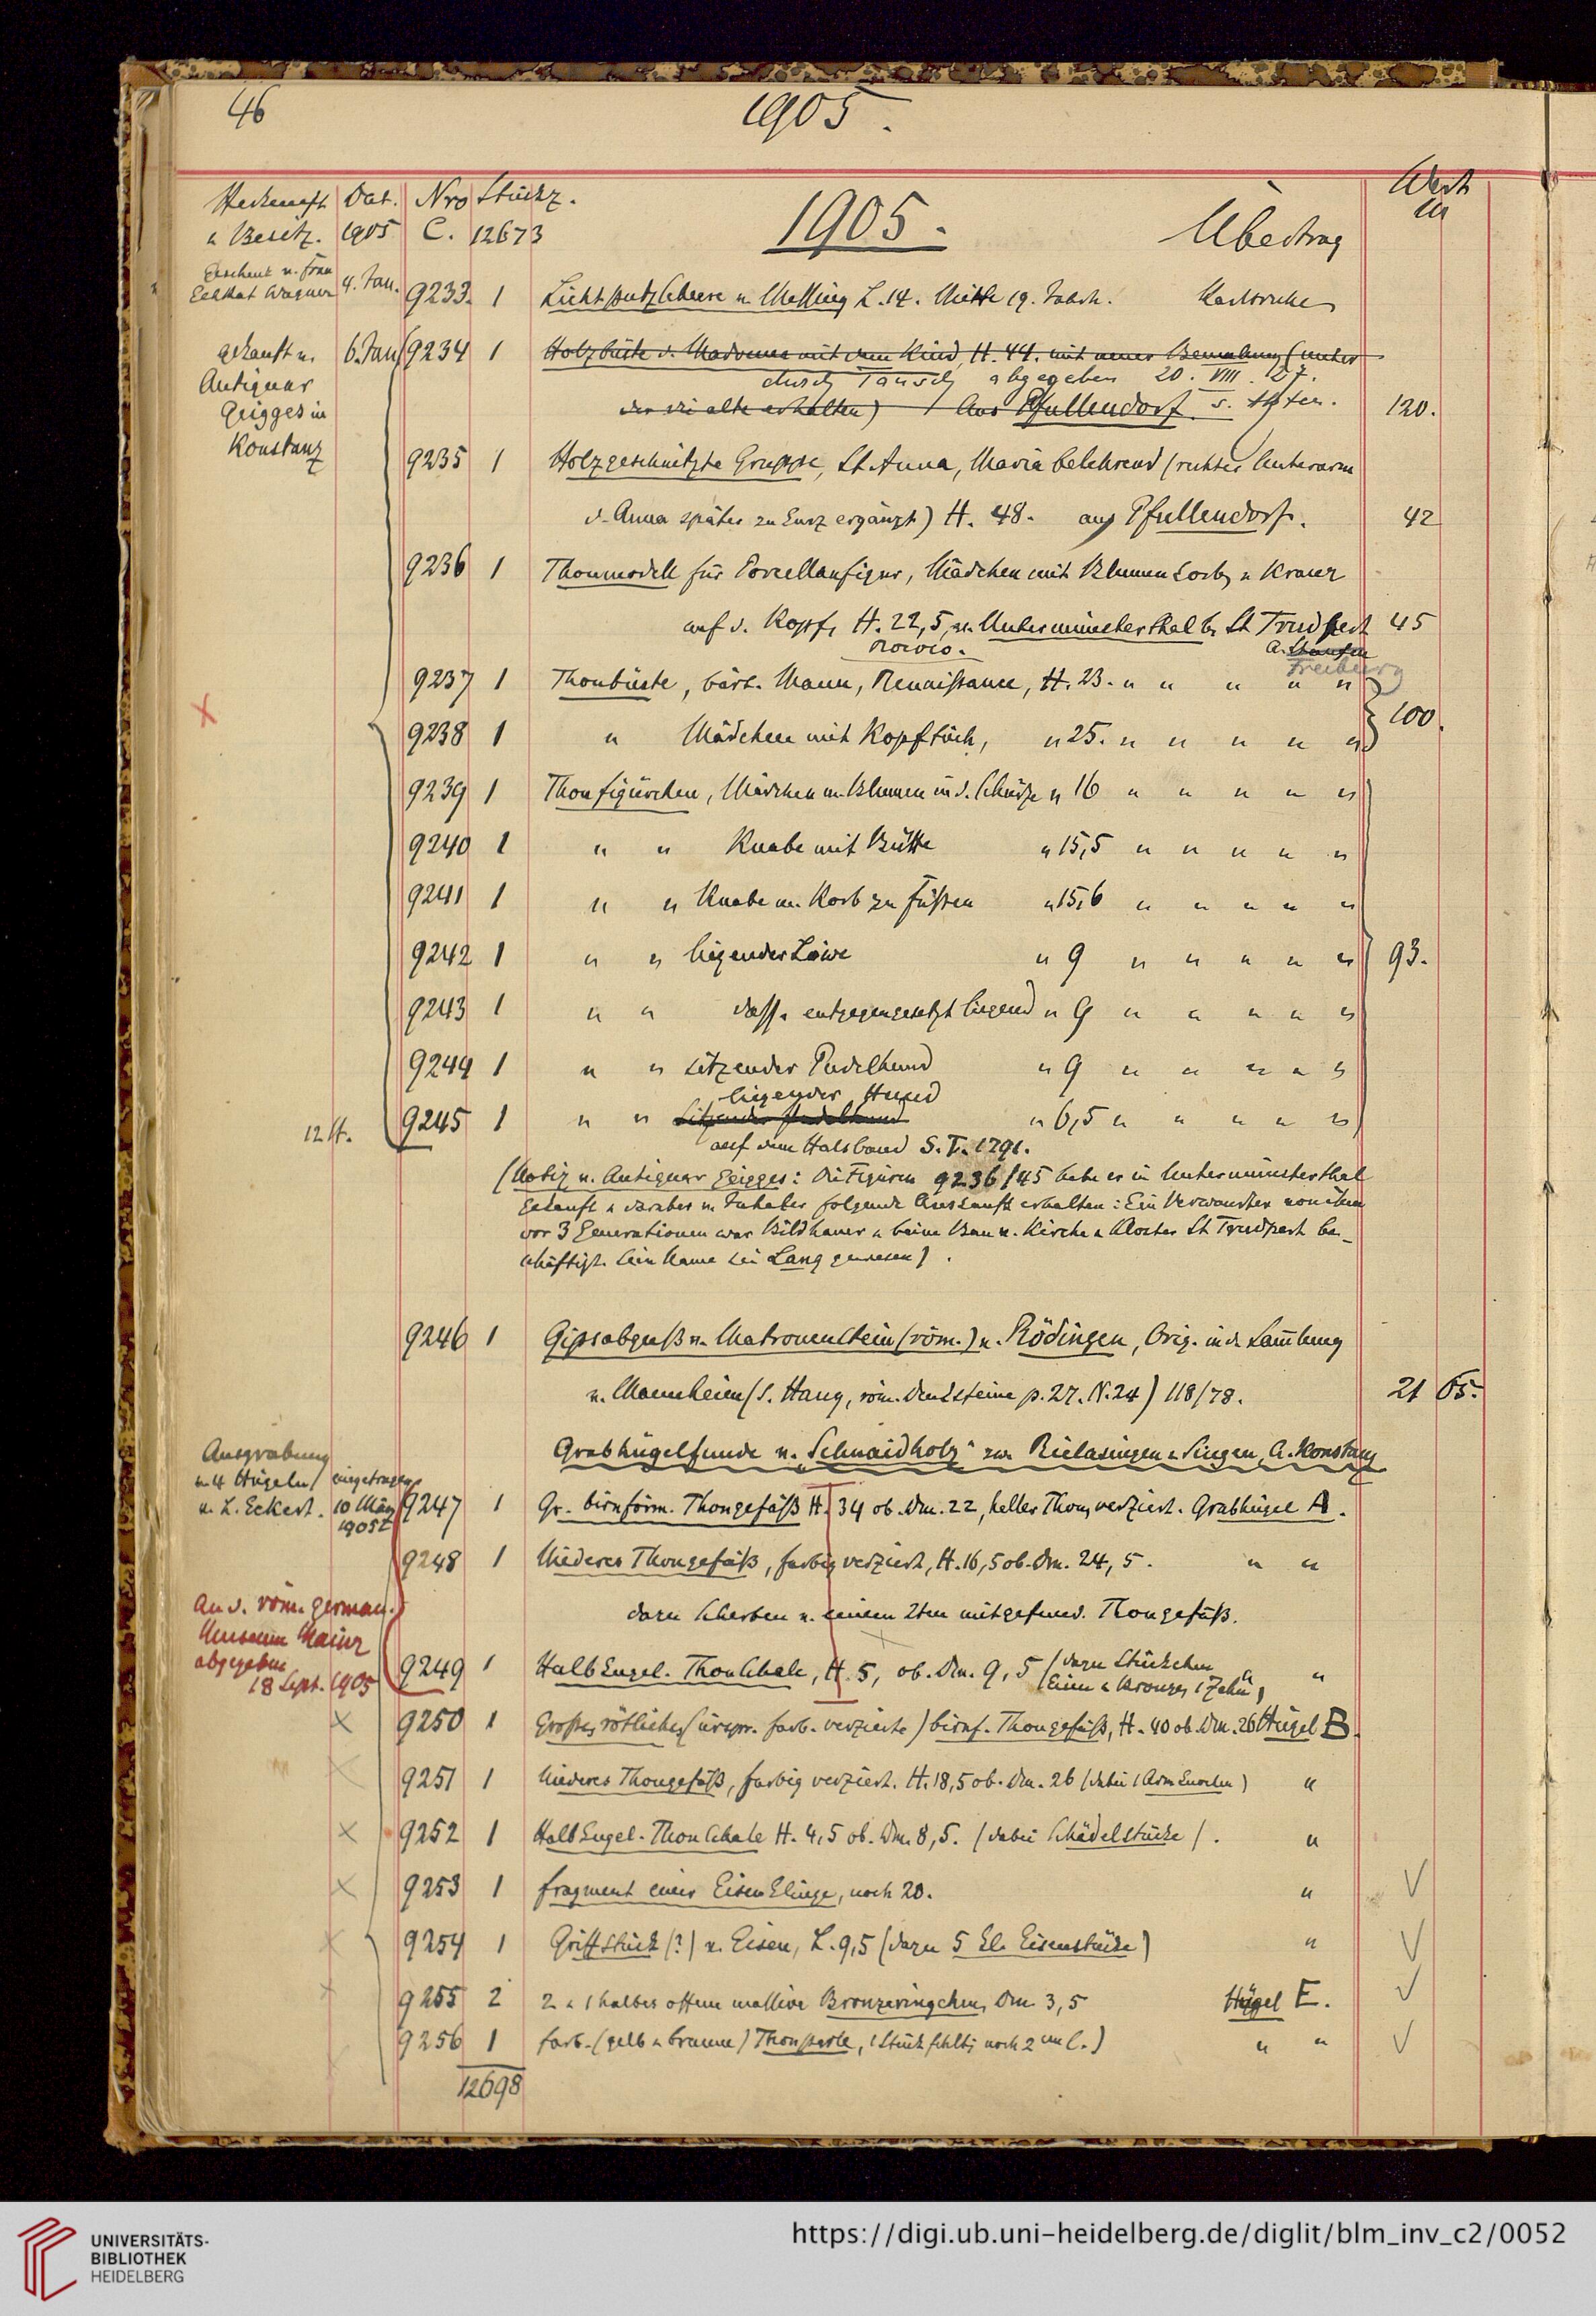 46
1905.
Herkunft Dat. Nro Stückz. Wert
u Besitz. 1905 C. 12673 1905. Übertrag M
Geschenk v. Frau
Geh. Rat Wagner 4. Jan. 9233. 1 Lichtputzscheere v. Messing L. 14. Mitte 19. Jahrh. Karlsruhe
gekauft v. 6. Jan 9234 1 Holzbüste d. Madonna mit dem Kind, H. 44. mit neuer Bemalung (unter
Antiquar durch Tausch abgegeben 20. VIII. 27.
Geigges in der die alte erhalten) Aus Pfullendorf s. Akten. 120.
Konstanz
9235 1 Holzgeschnitzte Gruppe, St. Anna, Maria belehrend (rechter Unterarm
d. Anna später zu kurz ergänzt) H. 48. aus Pfullendorf. 42
9236 1 Thonmodell für Porzellanfigur, Mädchen mit Blumenkorb u Kranz
auf d. Kopf, H. 22,5, v. Untermünsterthal b. St Trudpert 45
Rococo. A. Staufen
Freiburg
9237 1 Thonbüste, bärt. Mann, Renaissance, H. 23. " " " " "
100.
9238 1 " Mädchen mit Kopftuch, " 25. " " " " "
9239 1 Thonfigürchen, Mädchen m. Blumen in d. Schürze " 16 " " " " "
9240 1 " " Knabe mit Bütte " 15,5 " " " " "
9241 1 " " Knabe m. Korb zu Füssen " 15,6 " " " " "
9242 1 " " liegender Löwe " 9 " " " " " 93.
9243 1 " " dass. entgegengesetzt liegend " 9 " " " " "
9244 1 " " sitzender Pudelhund " 9 " " " " "
liegender Hund
12 St. 9245 1 " " sitzender Pudelhund " 6,5 " " " " "
auf dem Halsband S. T. 1791.
(Notiz v. Antiquar Geigges: Die Figuren 9236/45 habe er in Untermünsterthal
gekauft u darüber v. Inhaber folgende Auskunft erhalten: Ein Verwandter von ihm
vor 3 Generationen war Bildhauer u beim Bau v. Kirche u Kloster St Trudpert be-
schäftigt. Sein Name sei Lang gewesen).
9246 1 Gipsabguß v. Matronenstein (röm.) v. Rödingen, Orig. in d. Sammlung
v. Mannheim (s. Haug, röm. Denksteine p. 27. N. 24) 118/78. 21 65.
Grabhügelfunde v. "Schnaidholz" zw. Rielasingen u Singen, A. Konstanz
Ausgrabung
v. 4 Hügeln eingetragen
v. L. Eckert. 10 März 9247 1 Gr. birnförm. Thongefäß H. 34 ob. Dm. 22, heller Thon, verziert. Grabhügel A.
1905
9248 1 Niederes Thongefäß, farbig verziert, H. 16,5 ob. Dm. 24,5. " "
An d. röm. german. dazu Scherben v. einem 2ten mitgefund. Thongefäß.
Museum Mainz
abgegeben 9249 1 Halbkugel. Thonschale, H. 5, ob. Dm. 9,5 (dazu Stückchen " "
18 Sept. 1905 Eisen u Bronze, 1 Zahn)
9250 1 Großes rötliches (urspr. farb. verzierte) birnf. Thongefäß, H. 40 ob. Dm. 26 Hügel B.
9251 1 Niederes Thongefäß, farbig verziert. H. 18,5 ob. Dm. 26 (dabei 1 Armknochen) "
9252 1 Halbkugel. Thonschale H. 4,5 ob. Dm. 8,5. (dabei Schädelstücke). "
9253 1 Fragment einer Eisenklinge, noch 20. "
9254 1 Griffstück (?) v. Eisen, L. 9,5 (dazu 5 kl. Eisenstücke) "
9255 2 2 u 1 halbes offene massive Bronzeringchen, Dm 3,5 Hügel E.
9256 1 farb. (gelb u braune) Thonperle, 1 Stück fehlt; noch 2 cm l.) " "
12698
UNIVERSITÄTS-
BIBLIOTHEK
HEIDELBERG
https://digi.ub.uni-heidelberg.de/diglit/blm_inv_c2/0052